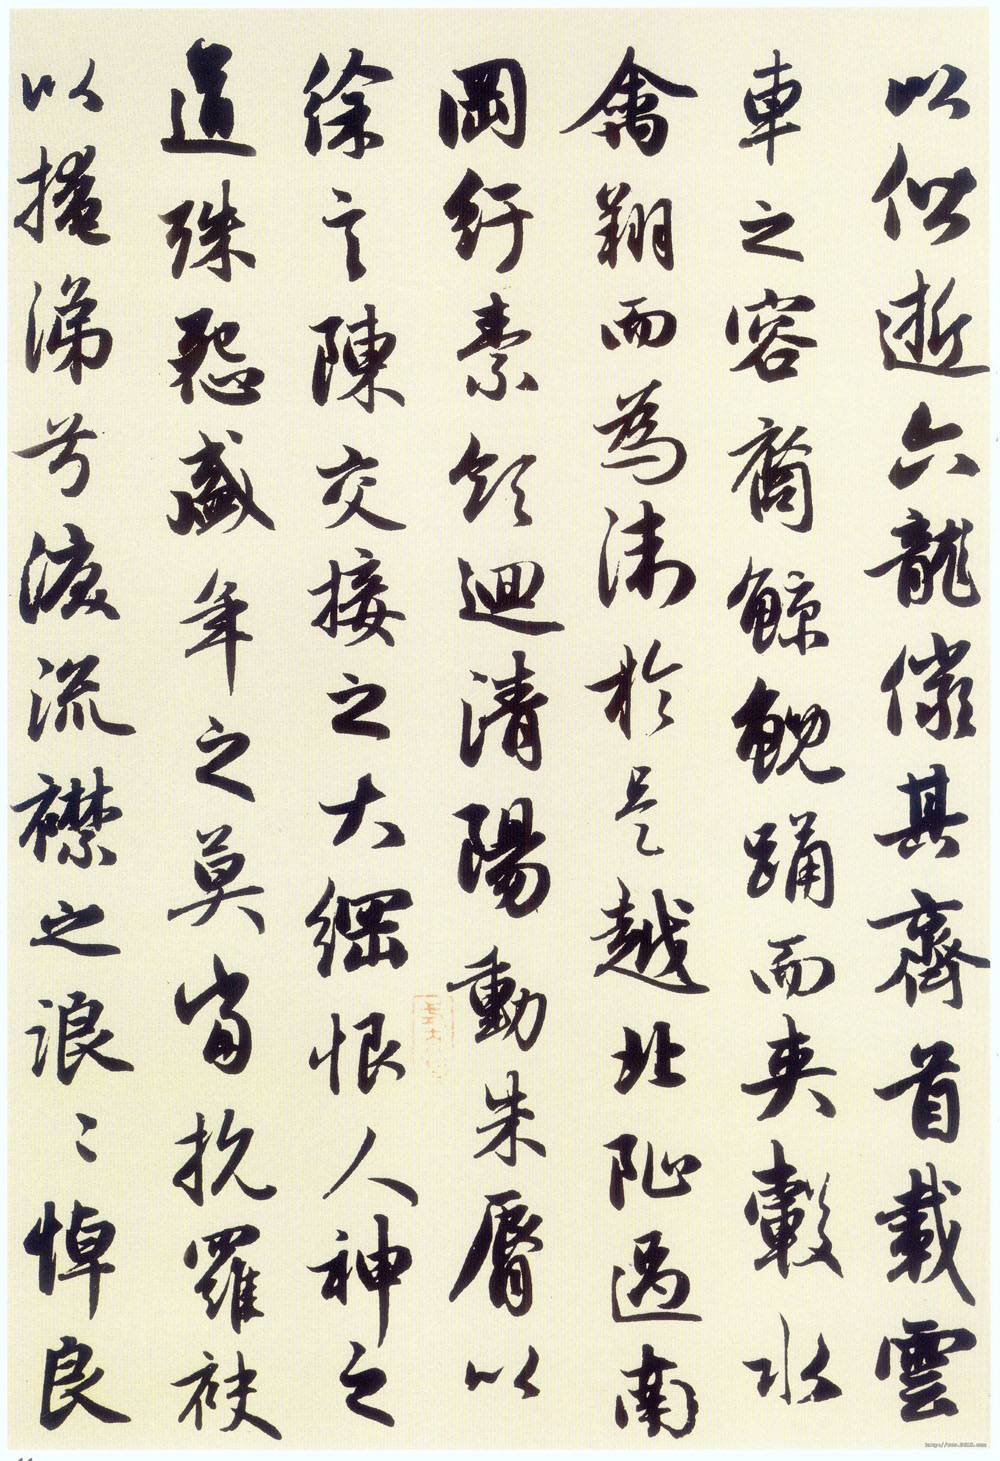 以偕逝六龍儼其齊首載雲
車之容裔鯨鯢踊而夾轂水
禽翔而為衛於是越北阯過南
岡紆素領迴清陽動朱脣以
徐言陳交接之大綱恨人神之
道殊怨盛年之莫當抗羅袂
以掩涕兮淚流襟之浪〻悼良